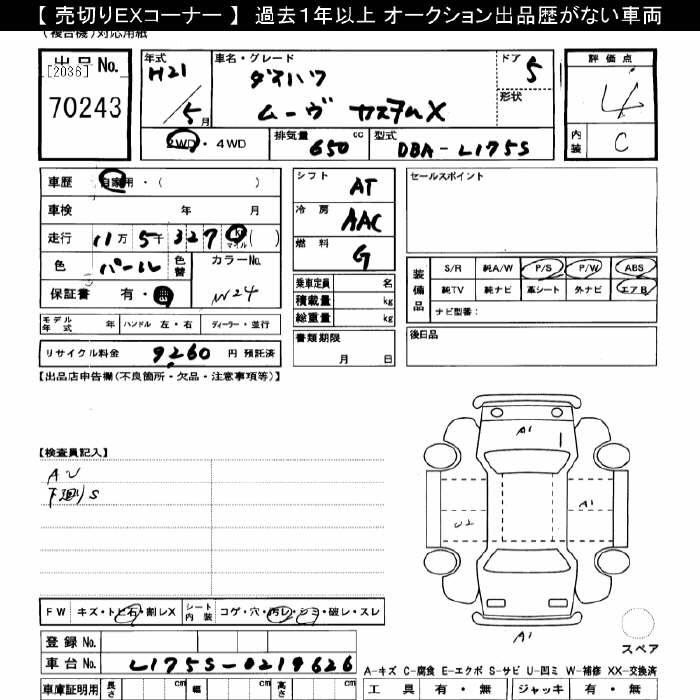 【 売切りEXコーナー 】 過去1年以上 オークション出品歴がない車両
(複合機)対応用紙
出品 No.
[2036]
70243
年式
H21
5月
車名・グレード
ダイハツ
ムーヴ カスタムX
ドア
5
形状
評価点
4
内装
C
2WD・4WD
排気量
650 cc
型式
DBA-L175S
車歴 自家用・( )
車検 年 月
走行 11万 5千 327 km マイル ( )
色 パール 色替 カラーNo.
W24
保証書 有・無
モデル年式 年 ハンドル 左・右 ディーラー・並行
リサイクル料金 9260 円 預託済
シフト AT
冷房 AAC
燃料 G
乗車定員 名
積載量 kg
総重量 kg
書類期限
月 日
セールスポイント
装備品
S/R 純A/W P/S P/W ABS
純TV 純ナビ 革シート 外ナビ エアB
ナビ型番:
後日品
【出品店申告欄(不良箇所・欠品・注意事項等)】
【検査員記入】
AU
下廻りS
A1
U2
A1
A1
スペア
FW キズ・トビ石・割レX シート内装 コゲ・穴・汚レ・シミ・破レ・スレ
登録 No.
車台 No. L175S-0219626
車庫証明用 長さ cm 幅 cm 高さ cm
A-キズ C-腐食 E-エクボ S-サビ U-凹ミ W-補修 XX-交換済
工具 有・無 ジャッキ 有・無